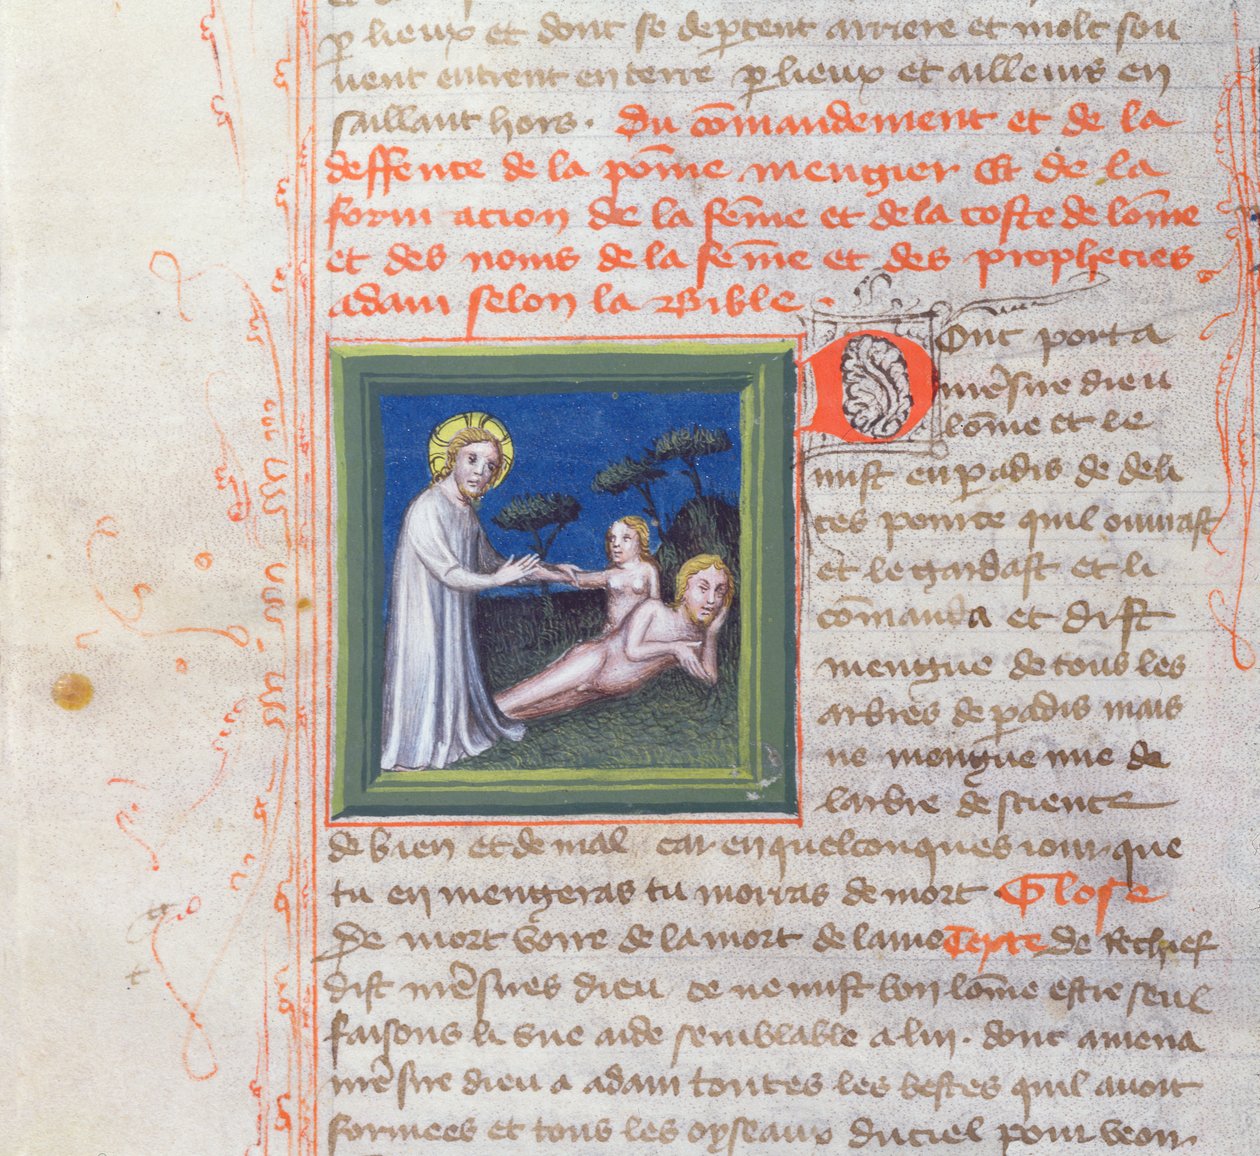 p lieux et dont se deptent arriere et molt sou
uent entrent en terre p lieux et ailleurs en
saillant hors. Du cōmandement et de la
deffence de la pōme mengier Et de la
form acion de la fēme et de la coste de lōme
et des noms de la fēme et des prophecies
adam selon la Bible.
Dont porta
mēsire dieu
lōme et le
mist en padis de deli
ces pource quil ouurast
et le gardast et li
cōmanda et dist
mengue de tous les
arbres de padis mais
ne mengue mie de
larbre de science
de bien et de mal car en quelconques iour que
tu en mengeras tu morras de mort Glose
De mort voire de la mort de lame Texte de Rechief
dist mēsires dieu ce ne mist bon lōme estre seul
faisons li une aide semblable a lui. dont amena
mēsire dieu a adam toutes les bestes quil auoit
formees et tous les oyseaux du ciel pour veoir